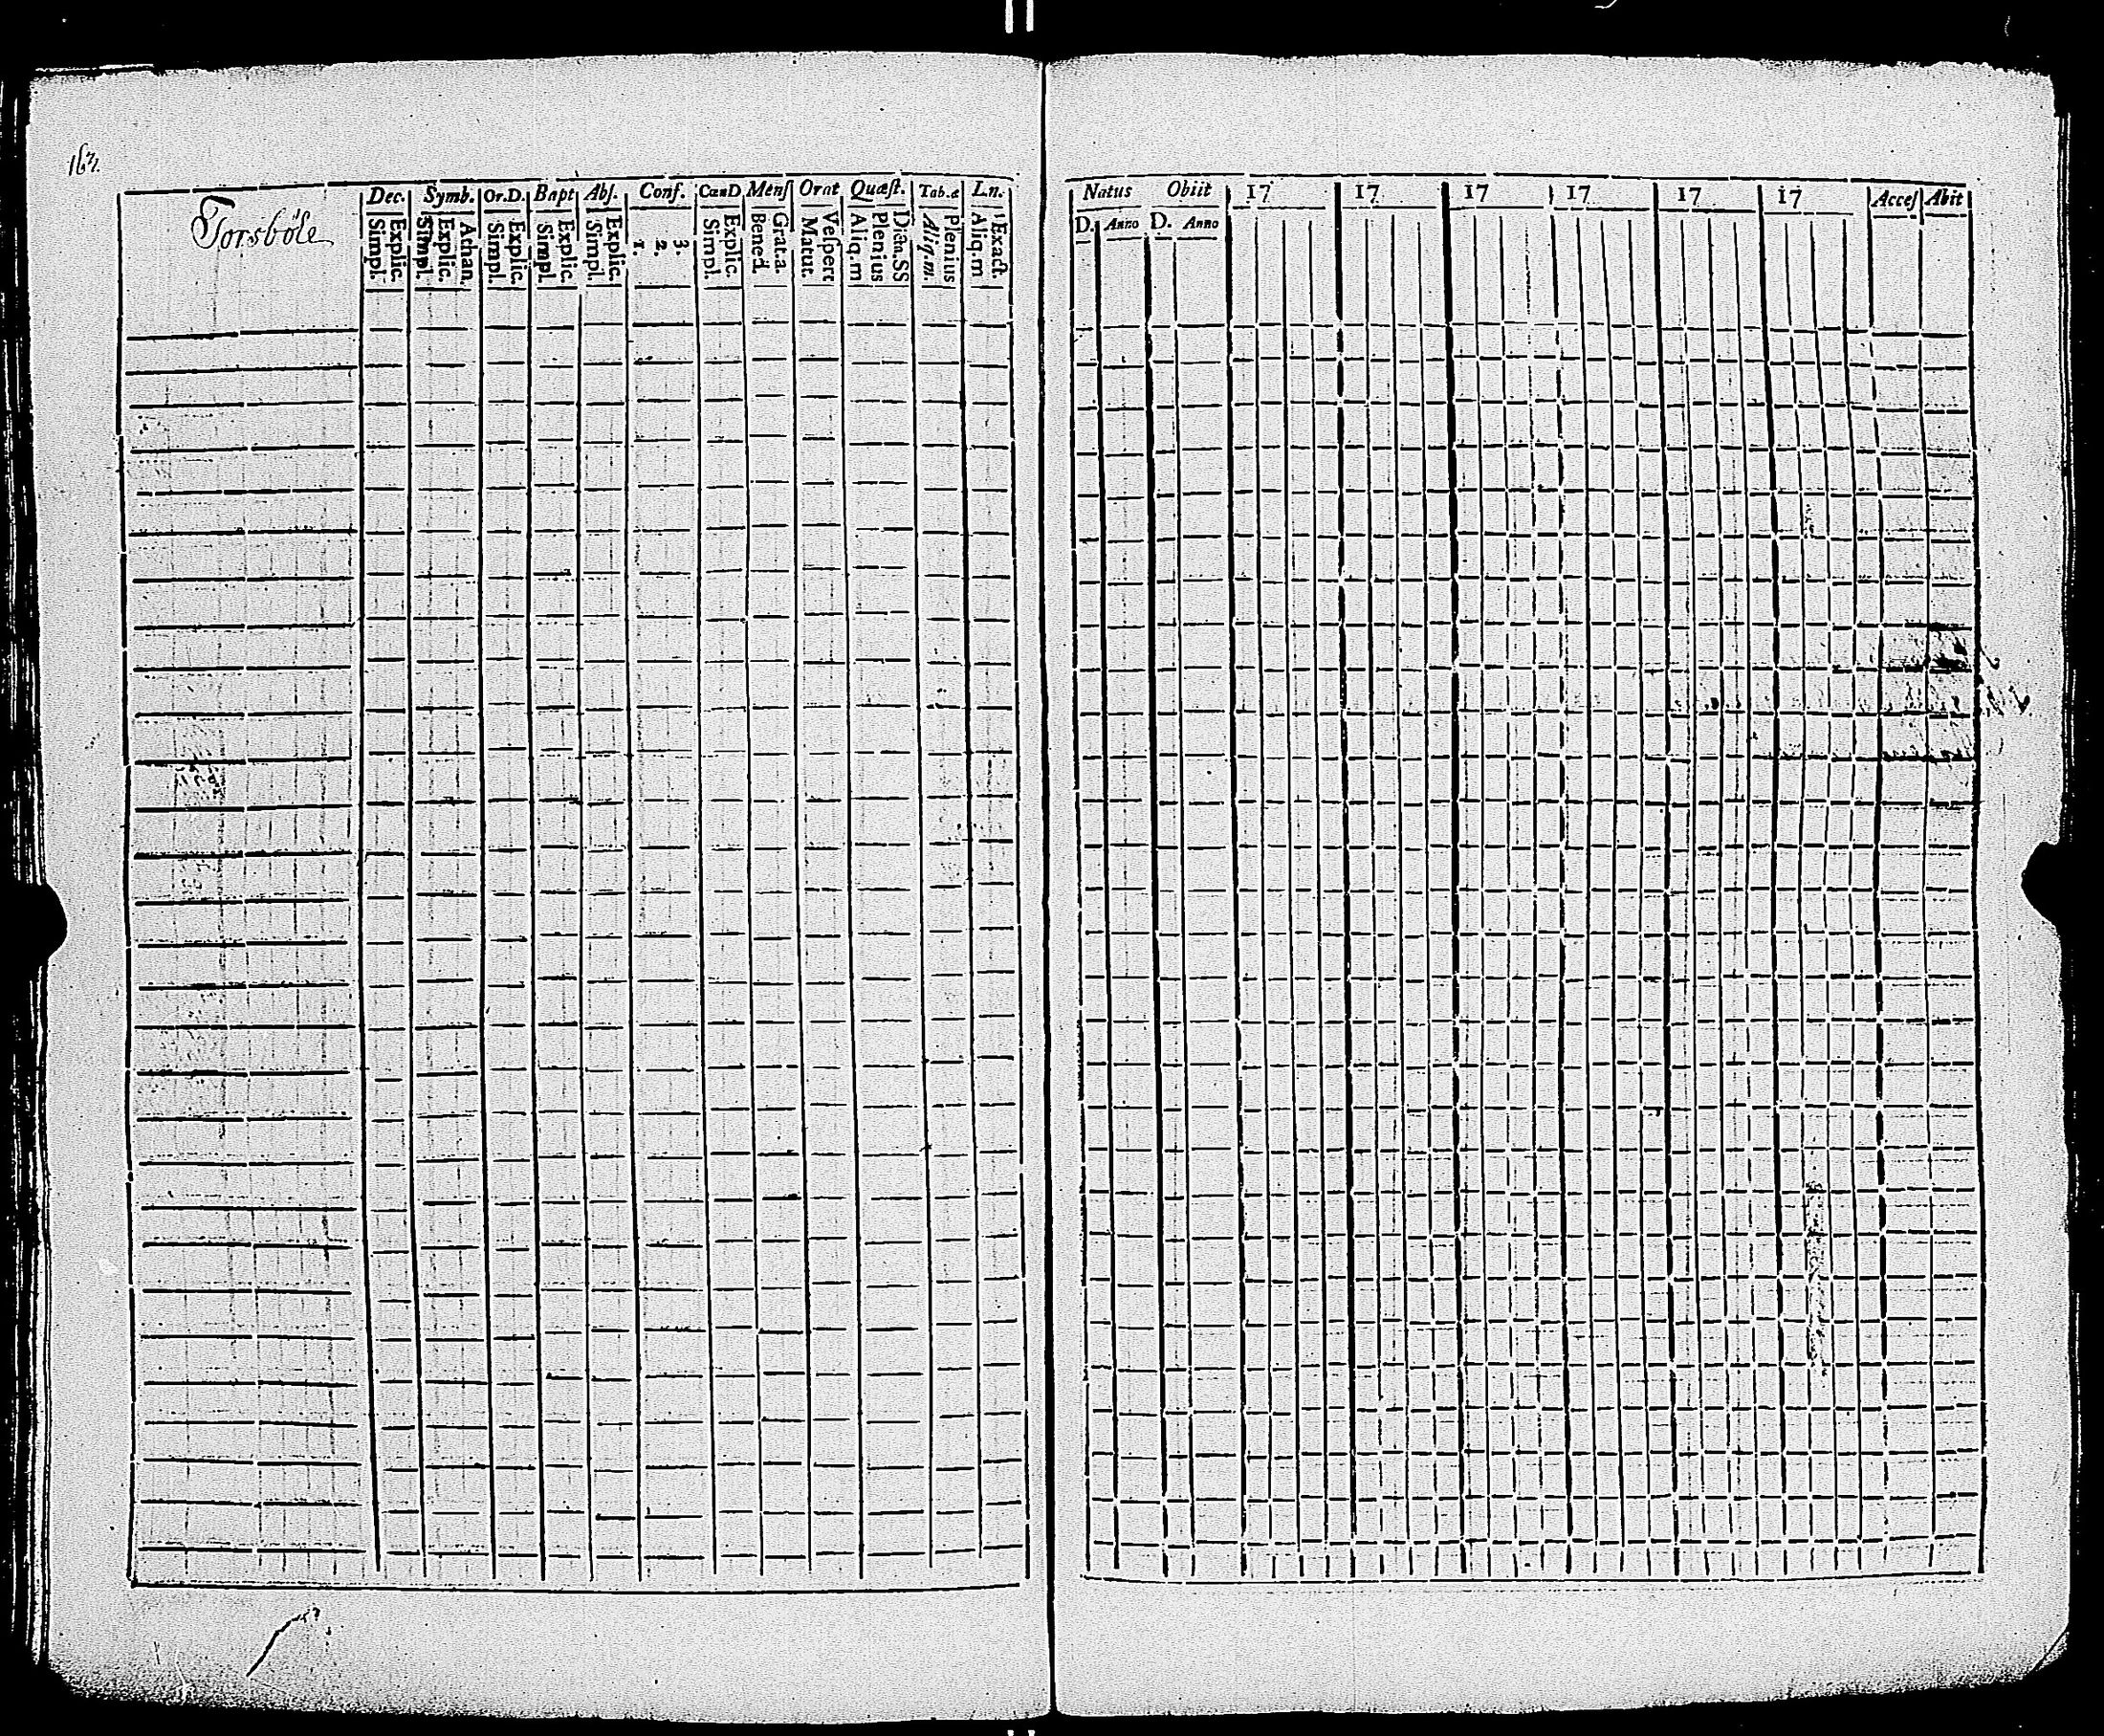 167.
Torsböle
Dec. Symb. Or.D. Bapt Abſ. Conf. CœnD Menſ Orat Quæſt. Tab.æ Ln.
Explic. Simpl. Athan. Explic. Simpl. Explic. Simpl. Explic. Simpl. Explic. Simpl. 3. 2. 1. Explic. Simpl. Grat.a. Bened. Veſpert Matut. Dicta.SS Plenius Aliq.m Plenius Aliq.m. Exact. Aliq.m
Natus Obiit 17 17 17 17 17 17 Acceſ Abit
D. Anno D. Anno